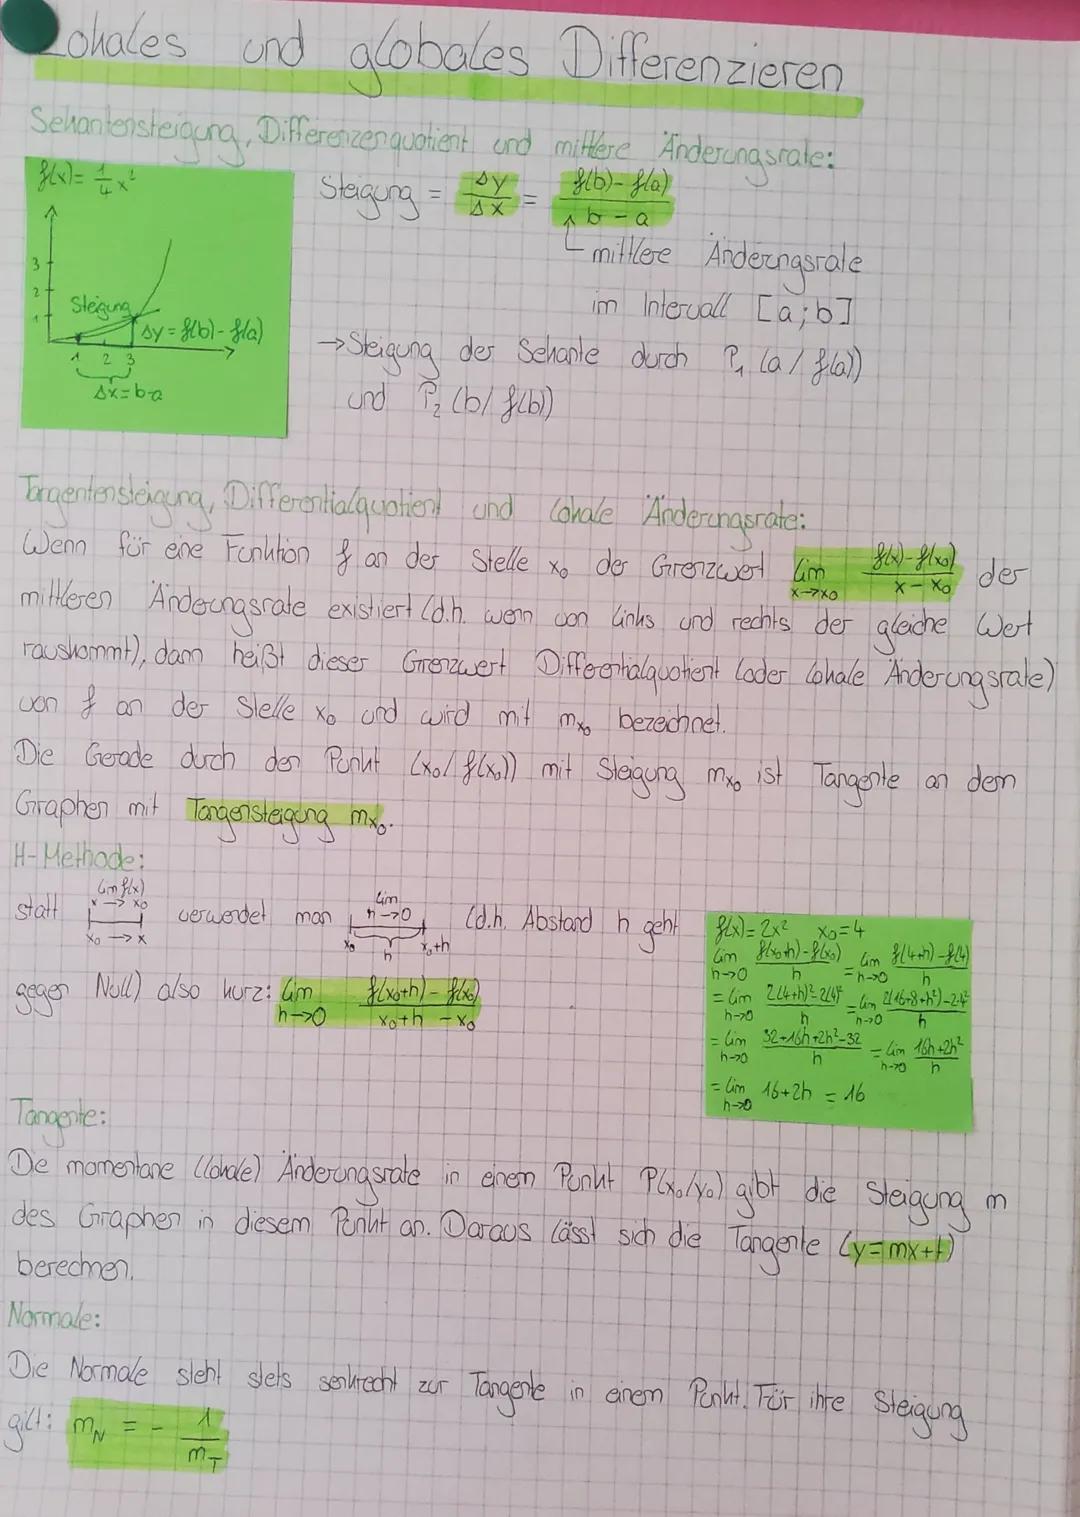 Lokales und globales Differenzieren
Sekantensteigung, Differenzenquotient und mittlere Änderungsrate:
f(x) = 1/4 x²
3
2
1
Steigung
Δy = f(b) - f(a)
1 2 3
Δx = b-a
Steigung = Δy/Δx = (f(b) - f(a))/(b - a)
mittlere Änderungsrate
im Intervall [a;b]
→ Steigung der Sekante durch P₁ (a / f(a))
und P₂ (b / f(b))
Tangentensteigung, Differentialquotient und lokale Änderungsrate:
Wenn für eine Funktion f an der Stelle x₀ der Grenzwert lim x→x₀ (f(x) - f(x₀))/(x - x₀) der
mittleren Änderungsrate existiert (d.h. wenn von links und rechts der gleiche Wert
rauskommt), dann heißt dieser Grenzwert Differentialquotient (oder lokale Änderungsrate)
von f an der Stelle x₀ und wird mit mx₀ bezeichnet.
Die Gerade durch den Punkt (x₀ / f(x₀)) mit Steigung mx₀ ist Tangente an dem
Graphen mit Tangensteigung mx₀.
H-Methode:
statt lim f(x) x→x₀ verwendet man lim h→0 (d.h. Abstand h geht
x₀ → x
x₀ h x₀+h
gegen Null) also kurz: lim h→0 (f(x₀+h) - f(x₀))/(x₀+h - x₀)
f(x) = 2x² x₀ = 4
lim h→0 (f(x₀+h) - f(x₀))/h = lim h→0 (f(4+h) - f(4))/h
= lim h→0 (2(4+h)² - 2(4)²)/h = lim h→0 (2(16+8+h²) - 2·4²)/h
= lim h→0 (32+16h+2h²-32)/h = lim h→0 (16h+2h²)/h
= lim h→0 16+2h = 16
Tangente:
Die momentane (lokale) Änderungsrate in einem Punkt P(x₀/y₀) gibt die Steigung m
des Graphen in diesem Punkt an. Daraus lässt sich die Tangente (y=mx+t)
berechnen.
Normale:
Die Normale steht stets senkrecht zur Tangente in einem Punkt. Für ihre Steigung
gilt: m_N = - 1/m_T